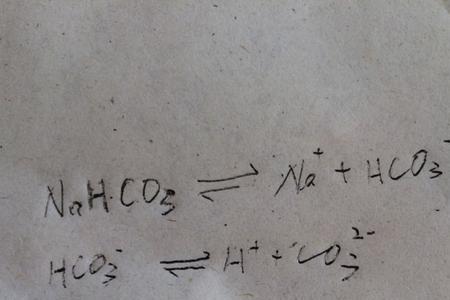 NaHCO₃ ⇌ Na⁺ + HCO₃⁻
HCO₃⁻ ⇌ H⁺ + CO₃²⁻